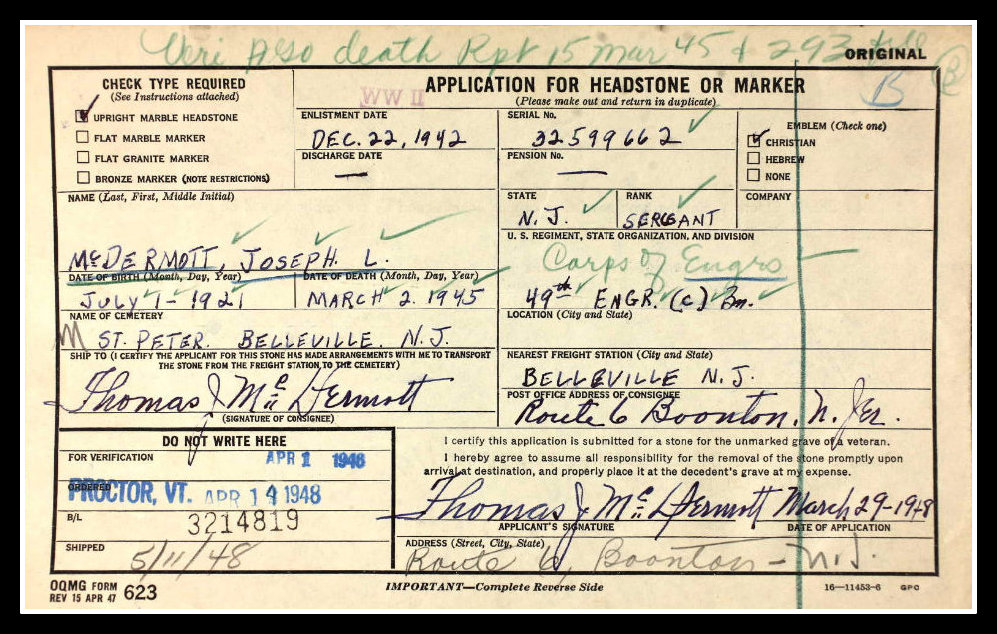 Veri Ago death Rpt 15 mar 45 & 293
ORIGINAL
B
CHECK TYPE REQUIRED
(See Instructions attached)
UPRIGHT MARBLE HEADSTONE
FLAT MARBLE MARKER
FLAT GRANITE MARKER
BRONZE MARKER (NOTE RESTRICTIONS)
WW II
APPLICATION FOR HEADSTONE OR MARKER
(Please make out and return in duplicate)
ENLISTMENT DATE
DEC. 22, 1942
DISCHARGE DATE
—
SERIAL No.
32599662
PENSION No.
—
EMBLEM (Check one)
CHRISTIAN
HEBREW
NONE
NAME (Last, First, Middle Initial)
McDERMOTT, JOSEPH L.
STATE
N.J.
RANK
SERGEANT
COMPANY
U. S. REGIMENT, STATE ORGANIZATION, AND DIVISION
Corps of Engrs
49th ENGR. (C) Bn.
DATE OF BIRTH (Month, Day, Year)
JULY 1- 1921
DATE OF DEATH (Month, Day, Year)
MARCH 2. 1945
NAME OF CEMETERY
M ST. PETER. BELLEVILLE. N.J.
LOCATION (City and State)
SHIP TO (I CERTIFY THE APPLICANT FOR THIS STONE HAS MADE ARRANGEMENTS WITH ME TO TRANSPORT
THE STONE FROM THE FREIGHT STATION TO THE CEMETERY)
Thomas J McDermott
(SIGNATURE OF CONSIGNEE)
NEAREST FREIGHT STATION (City and State)
BELLEVILLE N.J.
POST OFFICE ADDRESS OF CONSIGNEE
Route 6 Boonton, N. Jer.
DO NOT WRITE HERE
FOR VERIFICATION
APR 1 1948
ORDERED
PROCTOR, VT. APR 14 1948
B/L
3214819
SHIPPED
5/11/48
I certify this application is submitted for a stone for the unmarked grave of a veteran.
I hereby agree to assume all responsibility for the removal of the stone promptly upon
arrival at destination, and properly place it at the decedent's grave at my expense.
Thomas J McDermott March 29-1948
APPLICANT'S SIGNATURE
DATE OF APPLICATION
ADDRESS (Street, City, State)
Route 6, Boonton - N.J.
OQMG FORM 623
REV 15 APR 47
IMPORTANT—Complete Reverse Side
16—11453-6 GPO